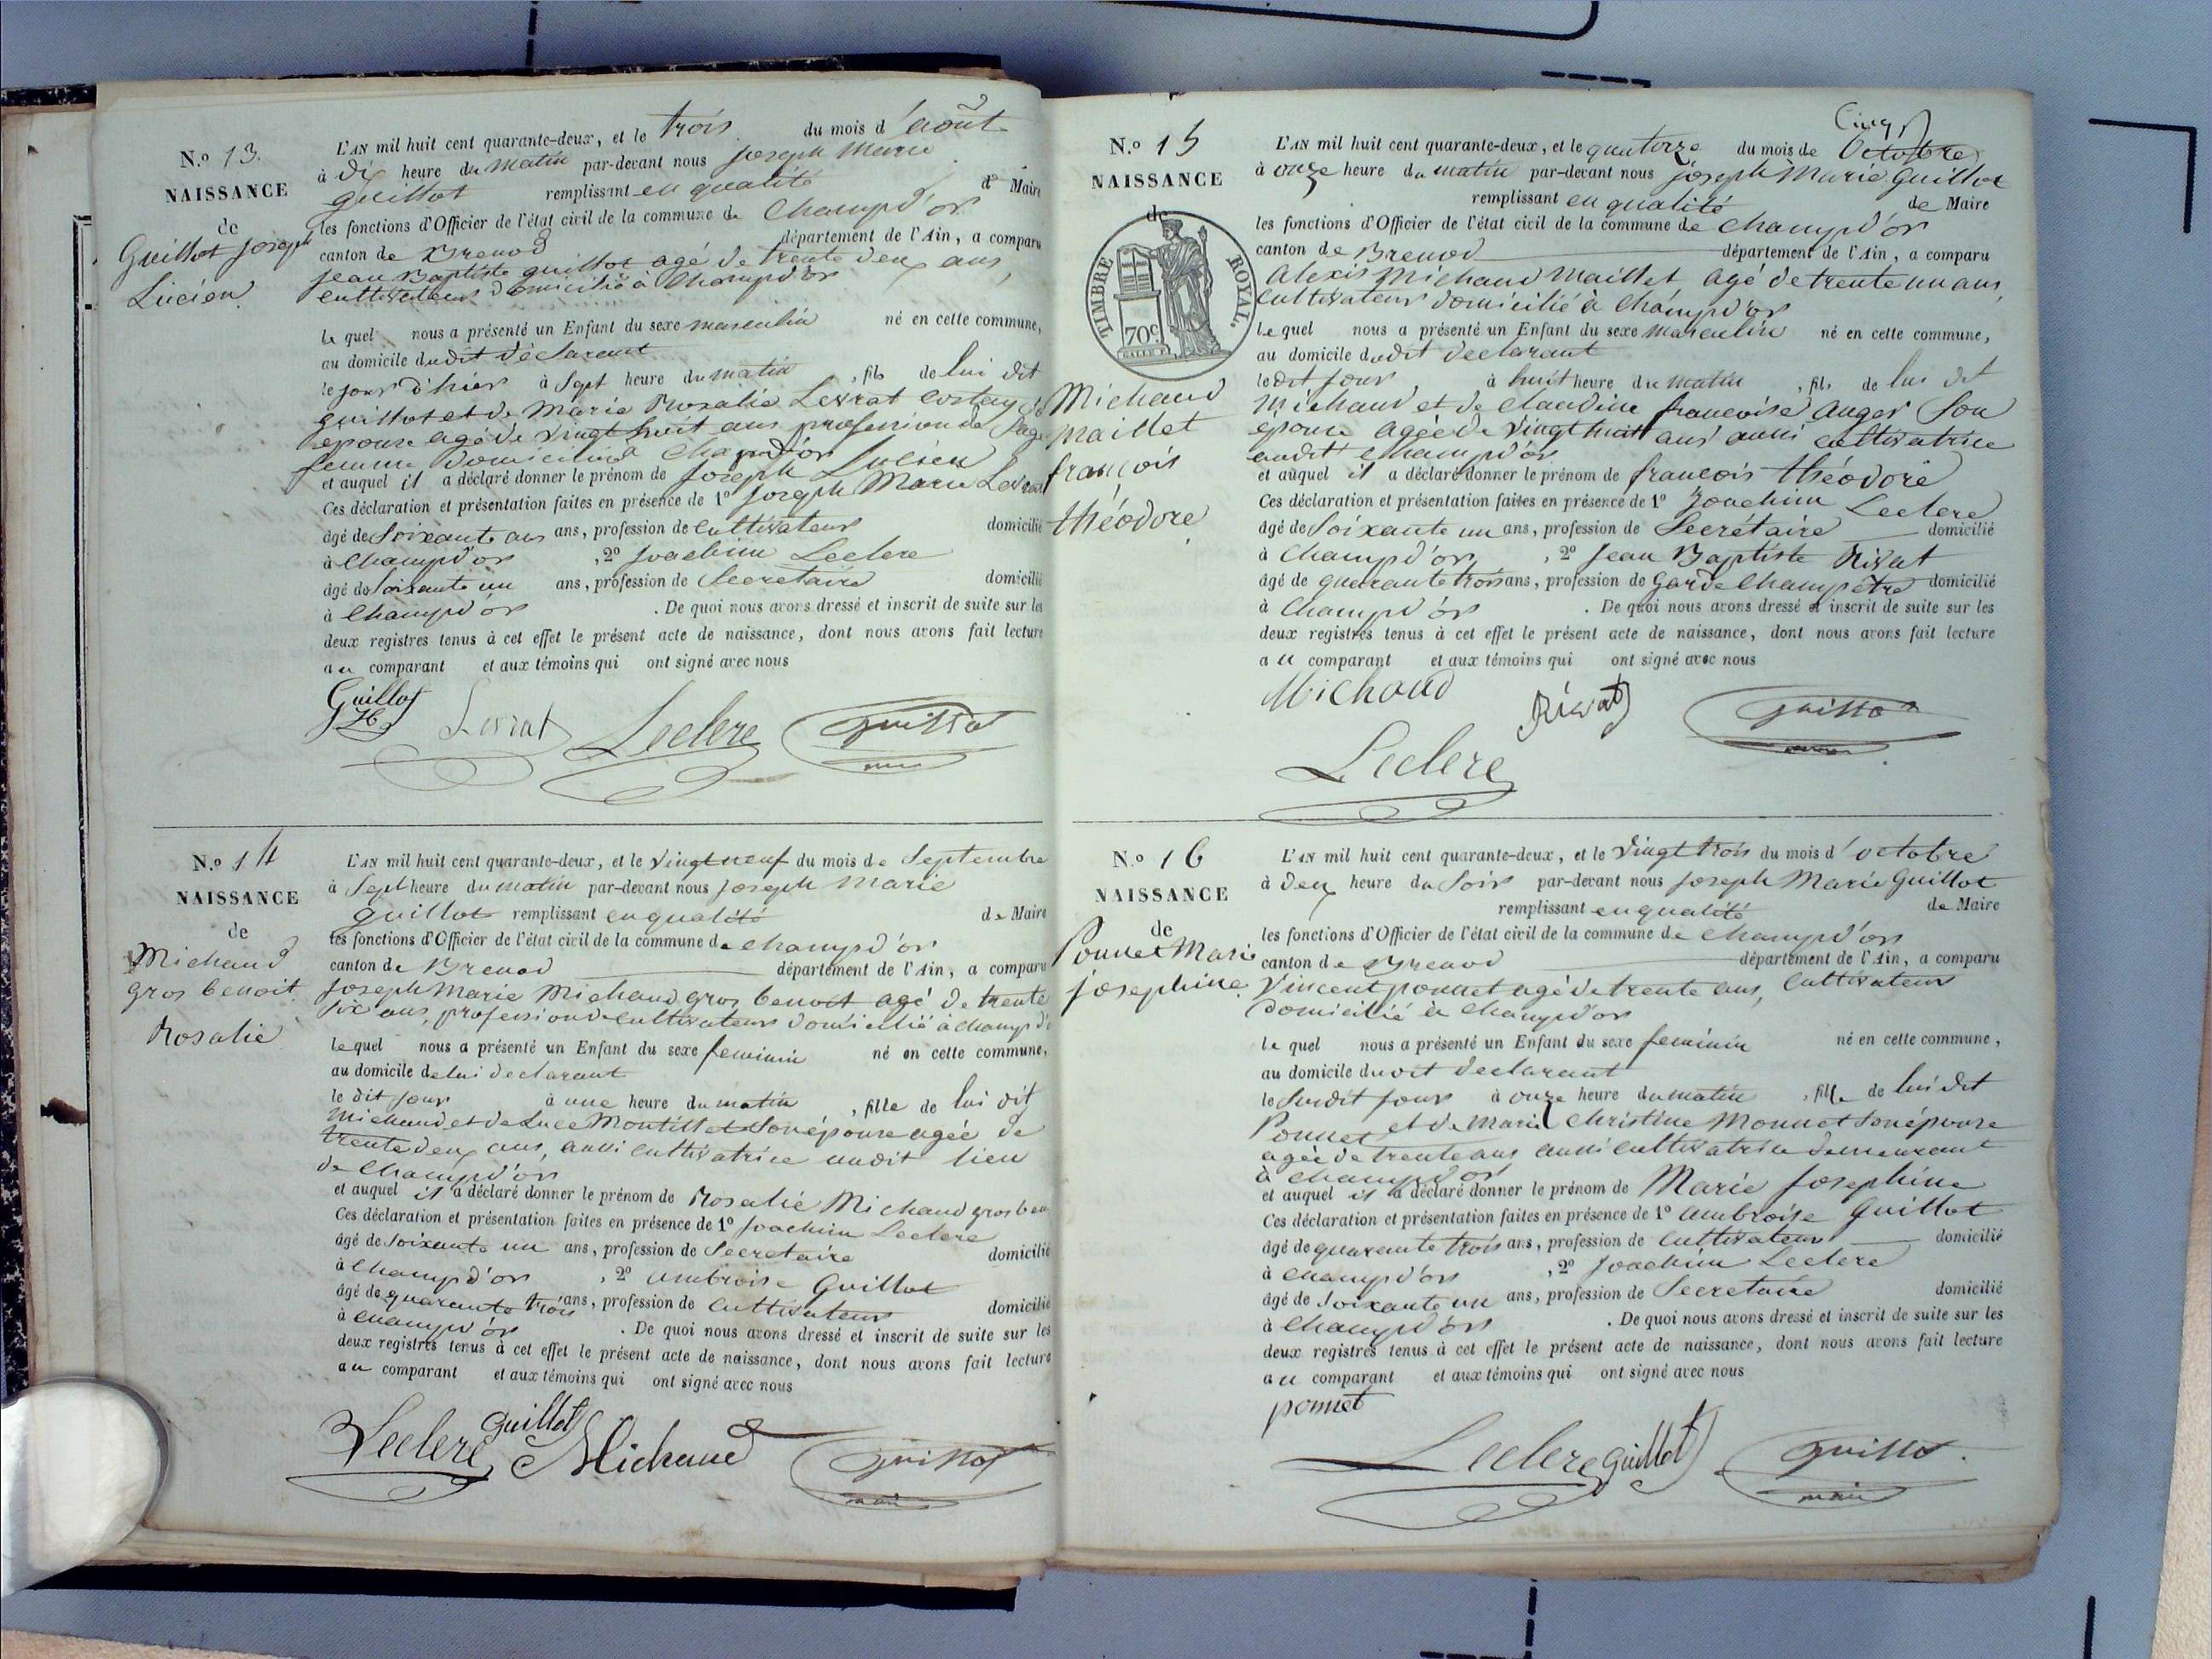 N.º 13.
NAISSANCE
de
Guillot Joseph
Lucien.
L'AN mil huit cent quarante-deux, et le trois du mois d'août
à dix heure du matin par-devant nous joseph marie
guillot remplissant en qualité de Maire
les fonctions d'Officier de l'état civil de la commune de Champd'or
canton de Brenod département de l'Ain, a comparu
jean Baptiste guillot agé de trente deux ans,
cultivateur domicilié à Champd'or
le quel nous a présenté un Enfant du sexe masculin né en cette commune,
au domicile dudit déclarant
le jour d'hier à Sept heure du matin, fils de lui dit
guillot et de Marie Rosalie Levrat
epouse agé de vingt huit ans profession de Sage
femme domicilié à Champd'or
et auquel il a déclaré donner le prénom de Joseph Lucien
Ces déclaration et présentation faites en présence de 1º Joseph Marie Levrat
âgé de Soixante ans ans, profession de cultivateur domicilié
à Champd'or, 2º Joachim Leclere
âgé de Soixante un ans, profession de Secretaire domicilié
à Champd'or. De quoi nous avons dressé et inscrit de suite sur les
deux registres tenus à cet effet le présent acte de naissance, dont nous avons fait lecture
au comparant et aux témoins qui ont signé avec nous
Guillot
Levrat Leclere guillot
N.º 14
NAISSANCE
de
Michaud
gros benoit
Rosalie
L'AN mil huit cent quarante-deux, et le vingt neuf du mois de Septembre
à Sept heure du matin par-devant nous joseph marie
guillot remplissant en qualité de Maire
les fonctions d'Officier de l'état civil de la commune de Champd'or
canton de Brenod département de l'Ain, a comparu
joseph Marie Michaud gros benoit agé de trente
six ans, profession de cultivateur domicilié à champd'o
lequel nous a présenté un Enfant du sexe feminin né en cette commune,
au domicile de lui declarant
le dit jour à une heure du matin, fille de lui dit
michaud et de Luce Montillet Son épouse agée de
trente deux ans, aussi cultivatrice audit lieu
de Champd'or
et auquel il a déclaré donner le prénom de Rosalie Michaud gros ben
Ces déclaration et présentation faites en présence de 1º Joachim Leclere
âgé de Soixante un ans, profession de Secretaire domicilié
à Champd'or, 2º Ambroise Guillot
âgé de quarante trois ans, profession de Cultivateur domicilié
à champd'or. De quoi nous avons dressé et inscrit de suite sur les
deux registres tenus à cet effet le présent acte de naissance, dont nous avons fait lecture
au comparant et aux témoins qui ont signé avec nous
Leclere guillot Michaud guillot
maire
N.º 15
NAISSANCE
de
TIMBRE ROYAL.
70c
Michaud
maillet
françois
théodore
L'AN mil huit cent quarante-deux, et le quatorze du mois de Octobre
à onze heure du matin par-devant nous joseph Marie Guillot
remplissant en qualité de Maire
les fonctions d'Officier de l'état civil de la commune de Champd'or
canton de Brenod département de l'Ain, a comparu
Alexis Michaud Maillet agé de trente un ans,
Cultivateur domicilié à Champd'or
Le quel nous a présenté un Enfant du sexe masculin né en cette commune,
au domicile dudit declarant
ledit jour, à huit heure du matin, fils de lui dit
Michaud et de Claudine francoise Anger Son
épouse agée de vingt huit ans aussi cultivatrice
audit Champd'or
et auquel il a déclaré donner le prénom de francois théodore
Ces déclaration et présentation faites en présence de 1º Joachim Leclere
âgé de Soixante un ans, profession de Secrétaire domicilié
à Champd'or, 2º Jean Baptiste Rivat
âgé de quarante trois ans, profession de Garde Champetre domicilié
à Champd'or. De quoi nous avons dressé et inscrit de suite sur les
deux registres tenus à cet effet le présent acte de naissance, dont nous avons fait lecture
au comparant et aux témoins qui ont signé avec nous
Michaud Rivat guillot
Leclere
N.º 16
NAISSANCE
de
Ponnet Marie
josephine.
L'AN mil huit cent quarante-deux, et le vingt trois du mois d'octobre
à deux heure du Soir par-devant nous joseph Marie Guillot
remplissant en qualité de Maire
les fonctions d'Officier de l'état civil de la commune de Champd'or
canton de Brenod département de l'Ain, a comparu
Vincent ponnet agé de trente ans, Cultivateur
domicilié à Champd'or
le quel nous a présenté un Enfant du sexe feminin né en cette commune,
au domicile dudit declarant
le Susdit jour à onze heure du matin, fille de lui dit
Ponnet et de Marie Christine Monnet Son épouse
agée de trente ans aussi cultivatrice demeurant
à Champd'or
et auquel il a déclaré donner le prénom de Marie Josephine
Ces déclaration et présentation faites en présence de 1º Ambroise Guillot
âgé de quarante trois ans, profession de Cultivateur domicilié
à Champd'or, 2º Joachim Leclere
âgé de Soixante un ans, profession de Secretaire domicilié
à Champd'or. De quoi nous avons dressé et inscrit de suite sur les
deux registres tenus à cet effet le présent acte de naissance, dont nous avons fait lecture
au comparant et aux témoins qui ont signé avec nous
ponnet
Leclere guillot guillot
maire